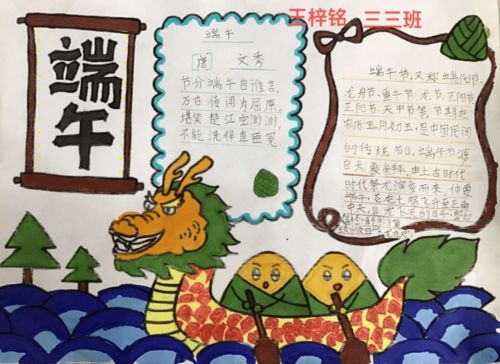 王梓铭 三三班
端午
端午
[唐] 文秀
节分端午自谁言,
万古传闻为屈原。
堪笑楚江空渺渺,
不能洗得直臣冤。
端午节,又称端阳节,
龙舟节、重午节、龙节、正阳节
天中节等,节期在
农历五月初五,是中国民间
的传统节日。端午节源
自天象崇拜,由上古时代
时代祭龙演变而来。仲夏
端午,苍龙七宿飞升至正南
中天,